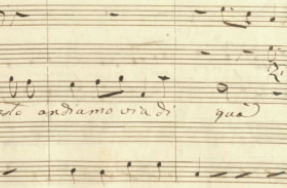 andiamo via di quà